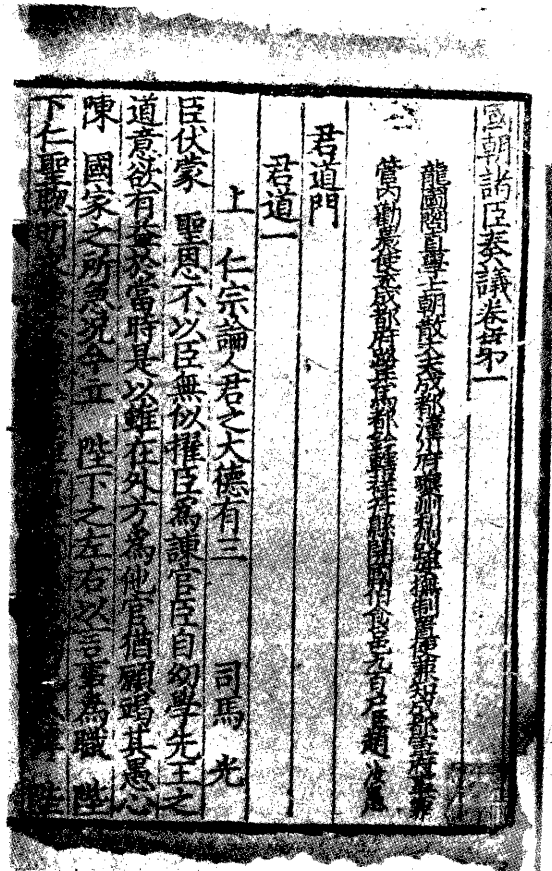 國朝諸臣奏議卷第一
龍圖閣直學士朝散大夫成都潼川府夔州利州路安撫制置使兼知成都軍府事兼
管內勸農使充成都府路兵馬都鈐轄祥符縣開國伯食邑九百戶臣趙汝愚
君道門
君道一
上 仁宗論人君之大德有三 司馬光
臣伏蒙 聖恩不以臣無似擢臣為諫官臣自幼學先王之
道意欲有益於當時是以雖在外方為他官猶願竭其愚心
陳 國家之所急況今立 陛下之左右以言事為職 陛
下仁聖聰明